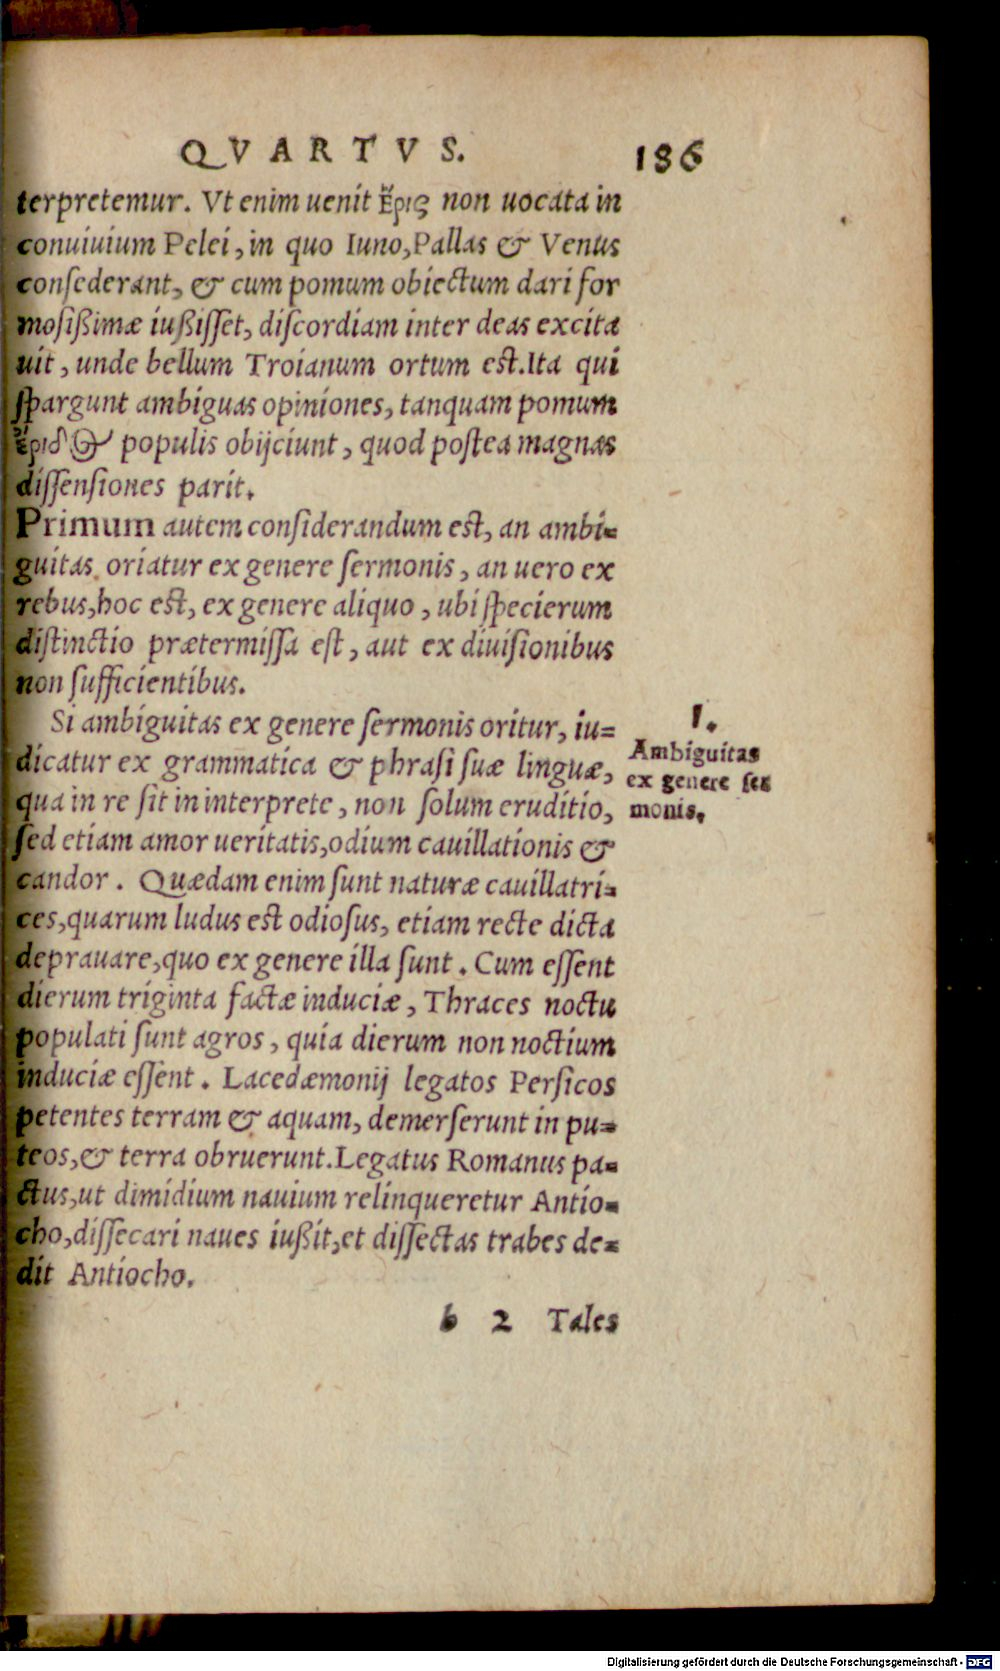 QVARTVS. 186
terpretemur. Vt enim uenit ἔρις non uocata in
conuiuium Pelei, in quo Iuno, Pallas & Venus
consederant, & cum pomum obiectum dari for
mosißimæ iußisset, discordiam inter deas excita
uit, unde bellum Troianum ortum est. Ita qui
spargunt ambiguas opiniones, tanquam pomum
ἔριδος populis obijciunt, quod postea magnas
dissensiones parit.
Primum autem considerandum est, an ambi-
guitas oriatur ex genere sermonis, an uero ex
rebus, hoc est, ex genere aliquo, ubi specierum
distinctio prætermissa est, aut ex diuisionibus
non sufficientibus.
Si ambiguitas ex genere sermonis oritur, iu-
dicatur ex grammatica & phrasi suæ linguæ,
qua in re sit in interprete, non solum eruditio,
sed etiam amor ueritatis, odium cauillationis &
candor. Quædam enim sunt naturæ cauillatri-
ces, quarum ludus est odiosus, etiam recte dicta
deprauare, quo ex genere illa sunt. Cum essent
dierum triginta factæ induciæ, Thraces noctu
populati sunt agros, quia dierum non noctium
induciæ essent. Lacedæmonij legatos Persicos
petentes terram & aquam, demerserunt in pu-
teos, & terra obruerunt. Legatus Romanus pa-
ctus, ut dimidium nauium relinqueretur Antio-
cho, dissecari naues iußit, et dissectas trabes de-
dit Antiocho.
1.
Ambiguitas
ex genere ser
monis.
b 2 Tales
Digitalisierung gefördert durch die Deutsche Forschungsgemeinschaft - DFG